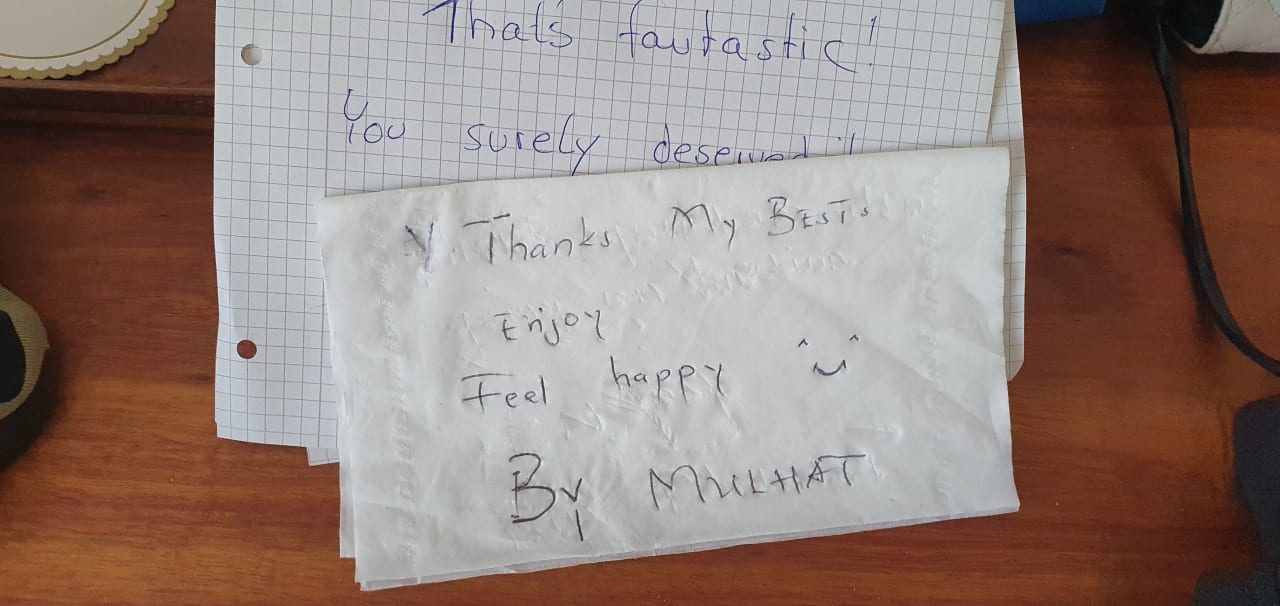 Thats fantastic!
You surely deserved it
Thanks My BESTS
Enjoy
Feel happy
By MULHAT